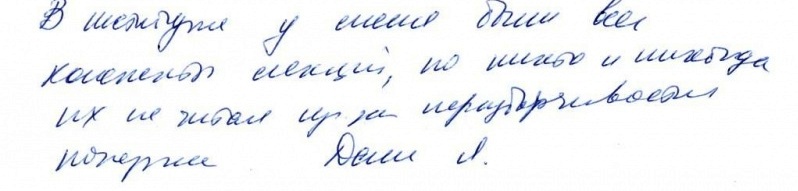 В институте у меня были все
конспекты лекций, но никто и никогда
их не читал из за неразборчивости
почерка Даши Я.